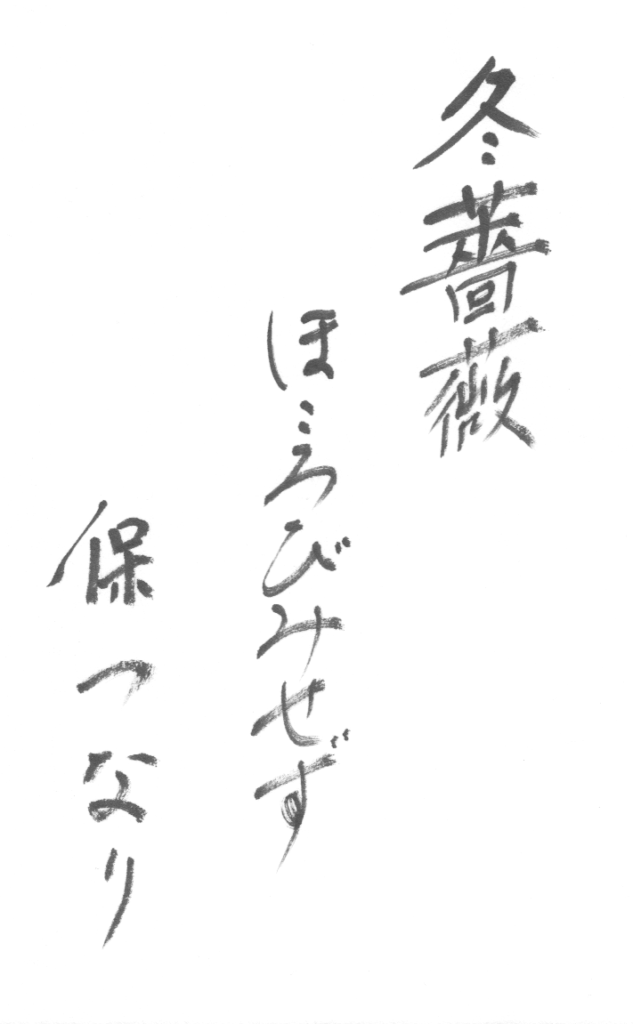 冬薔薇
ほころびみせず
保つなり